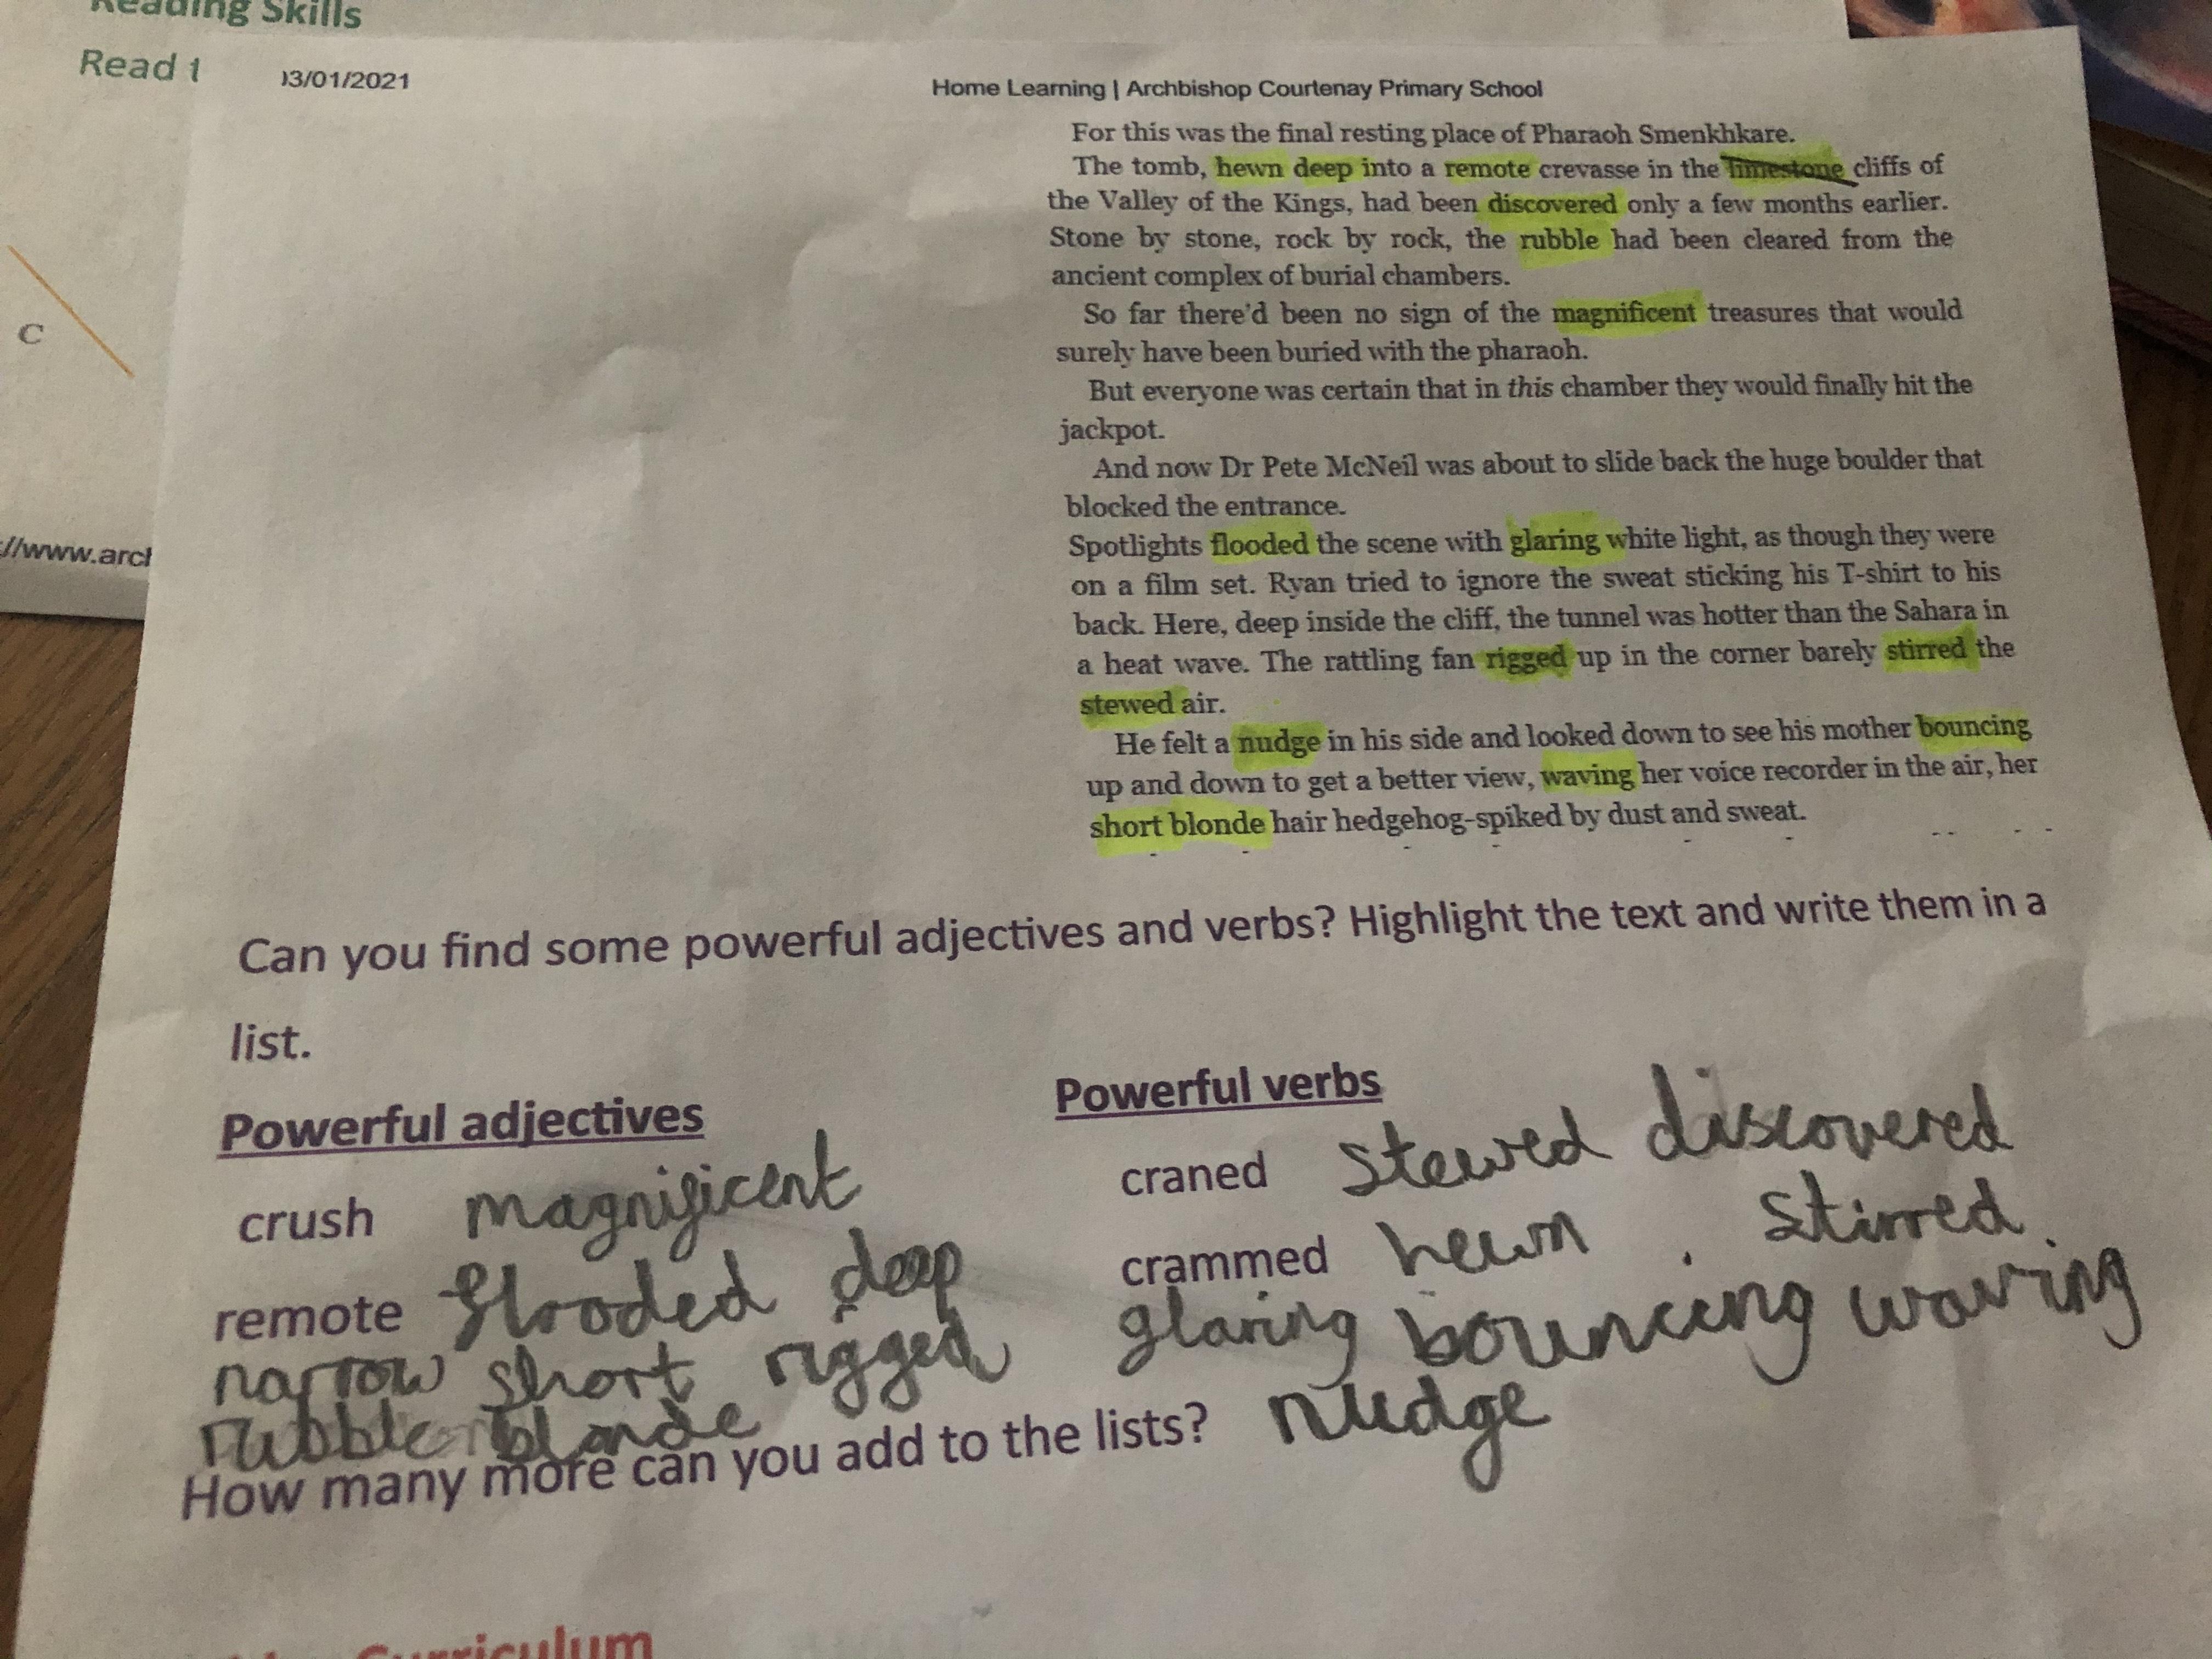 Reading Skills
Read t
C
://www.arch
3/01/2021
Home Learning | Archbishop Courtenay Primary School
For this was the final resting place of Pharaoh Smenkhkare.
The tomb, hewn deep into a remote crevasse in the limestone cliffs of
the Valley of the Kings, had been discovered only a few months earlier.
Stone by stone, rock by rock, the rubble had been cleared from the
ancient complex of burial chambers.
So far there'd been no sign of the magnificent treasures that would
surely have been buried with the pharaoh.
But everyone was certain that in this chamber they would finally hit the
jackpot.
And now Dr Pete McNeil was about to slide back the huge boulder that
blocked the entrance.
Spotlights flooded the scene with glaring white light, as though they were
on a film set. Ryan tried to ignore the sweat sticking his T-shirt to his
back. Here, deep inside the cliff, the tunnel was hotter than the Sahara in
a heat wave. The rattling fan rigged up in the corner barely stirred the
stewed air.
He felt a nudge in his side and looked down to see his mother bouncing
up and down to get a better view, waving her voice recorder in the air, her
short blonde hair hedgehog-spiked by dust and sweat.
Can you find some powerful adjectives and verbs? Highlight the text and write them in a
list.
Powerful adjectives
crush magnificent
remote flooded deep
narrow short rigged
rubble blonde
Powerful verbs
craned stewed discovered
crammed hewn stirred
glaring bouncing waving
nudge
How many more can you add to the lists?
Curriculum